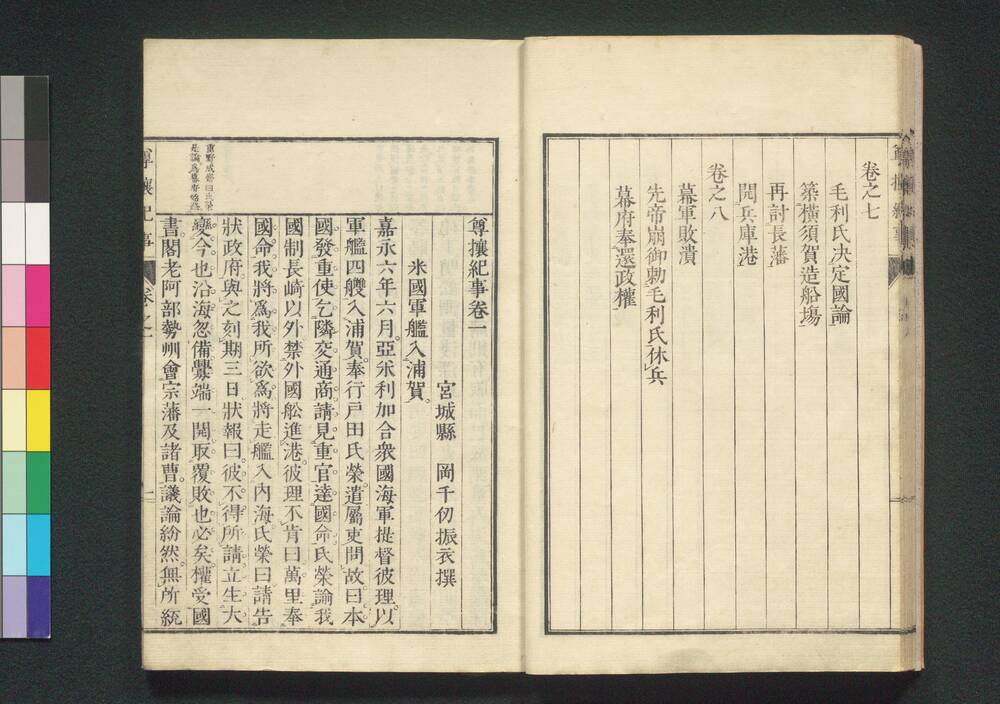 卷之七
毛利氏决定國論
築橫須賀造船塲
再討長藩
開兵庫港
卷之八
幕軍敗潰
先帝崩御勅毛利氏休兵
幕府奉還政權
尊攘紀事卷一
宮城縣 岡千仞振衣撰
米國軍艦入浦賀。
嘉永六年六月。亞米利加合衆國海軍提督彼理。以
軍艦四艘入浦賀。奉行戸田氏榮。遣屬吏問故。曰。本
國發重使。乞隣交通商。請見重官。達國命。氏榮諭我
國制長崎以外。禁外國舩進港。彼理不肯曰。萬里奉
國命。我將爲我所欲爲。將走艦入内海。氏榮曰。請告
狀政府。與之刻期三日。狀報曰。彼不得所請。立生大
變。今也沿海忽備。釁端一開。取覆敗也必矣。權受國
書。閣老阿部勢州會宗藩及諸曹。議論紛然。無所統
尊攘紀事